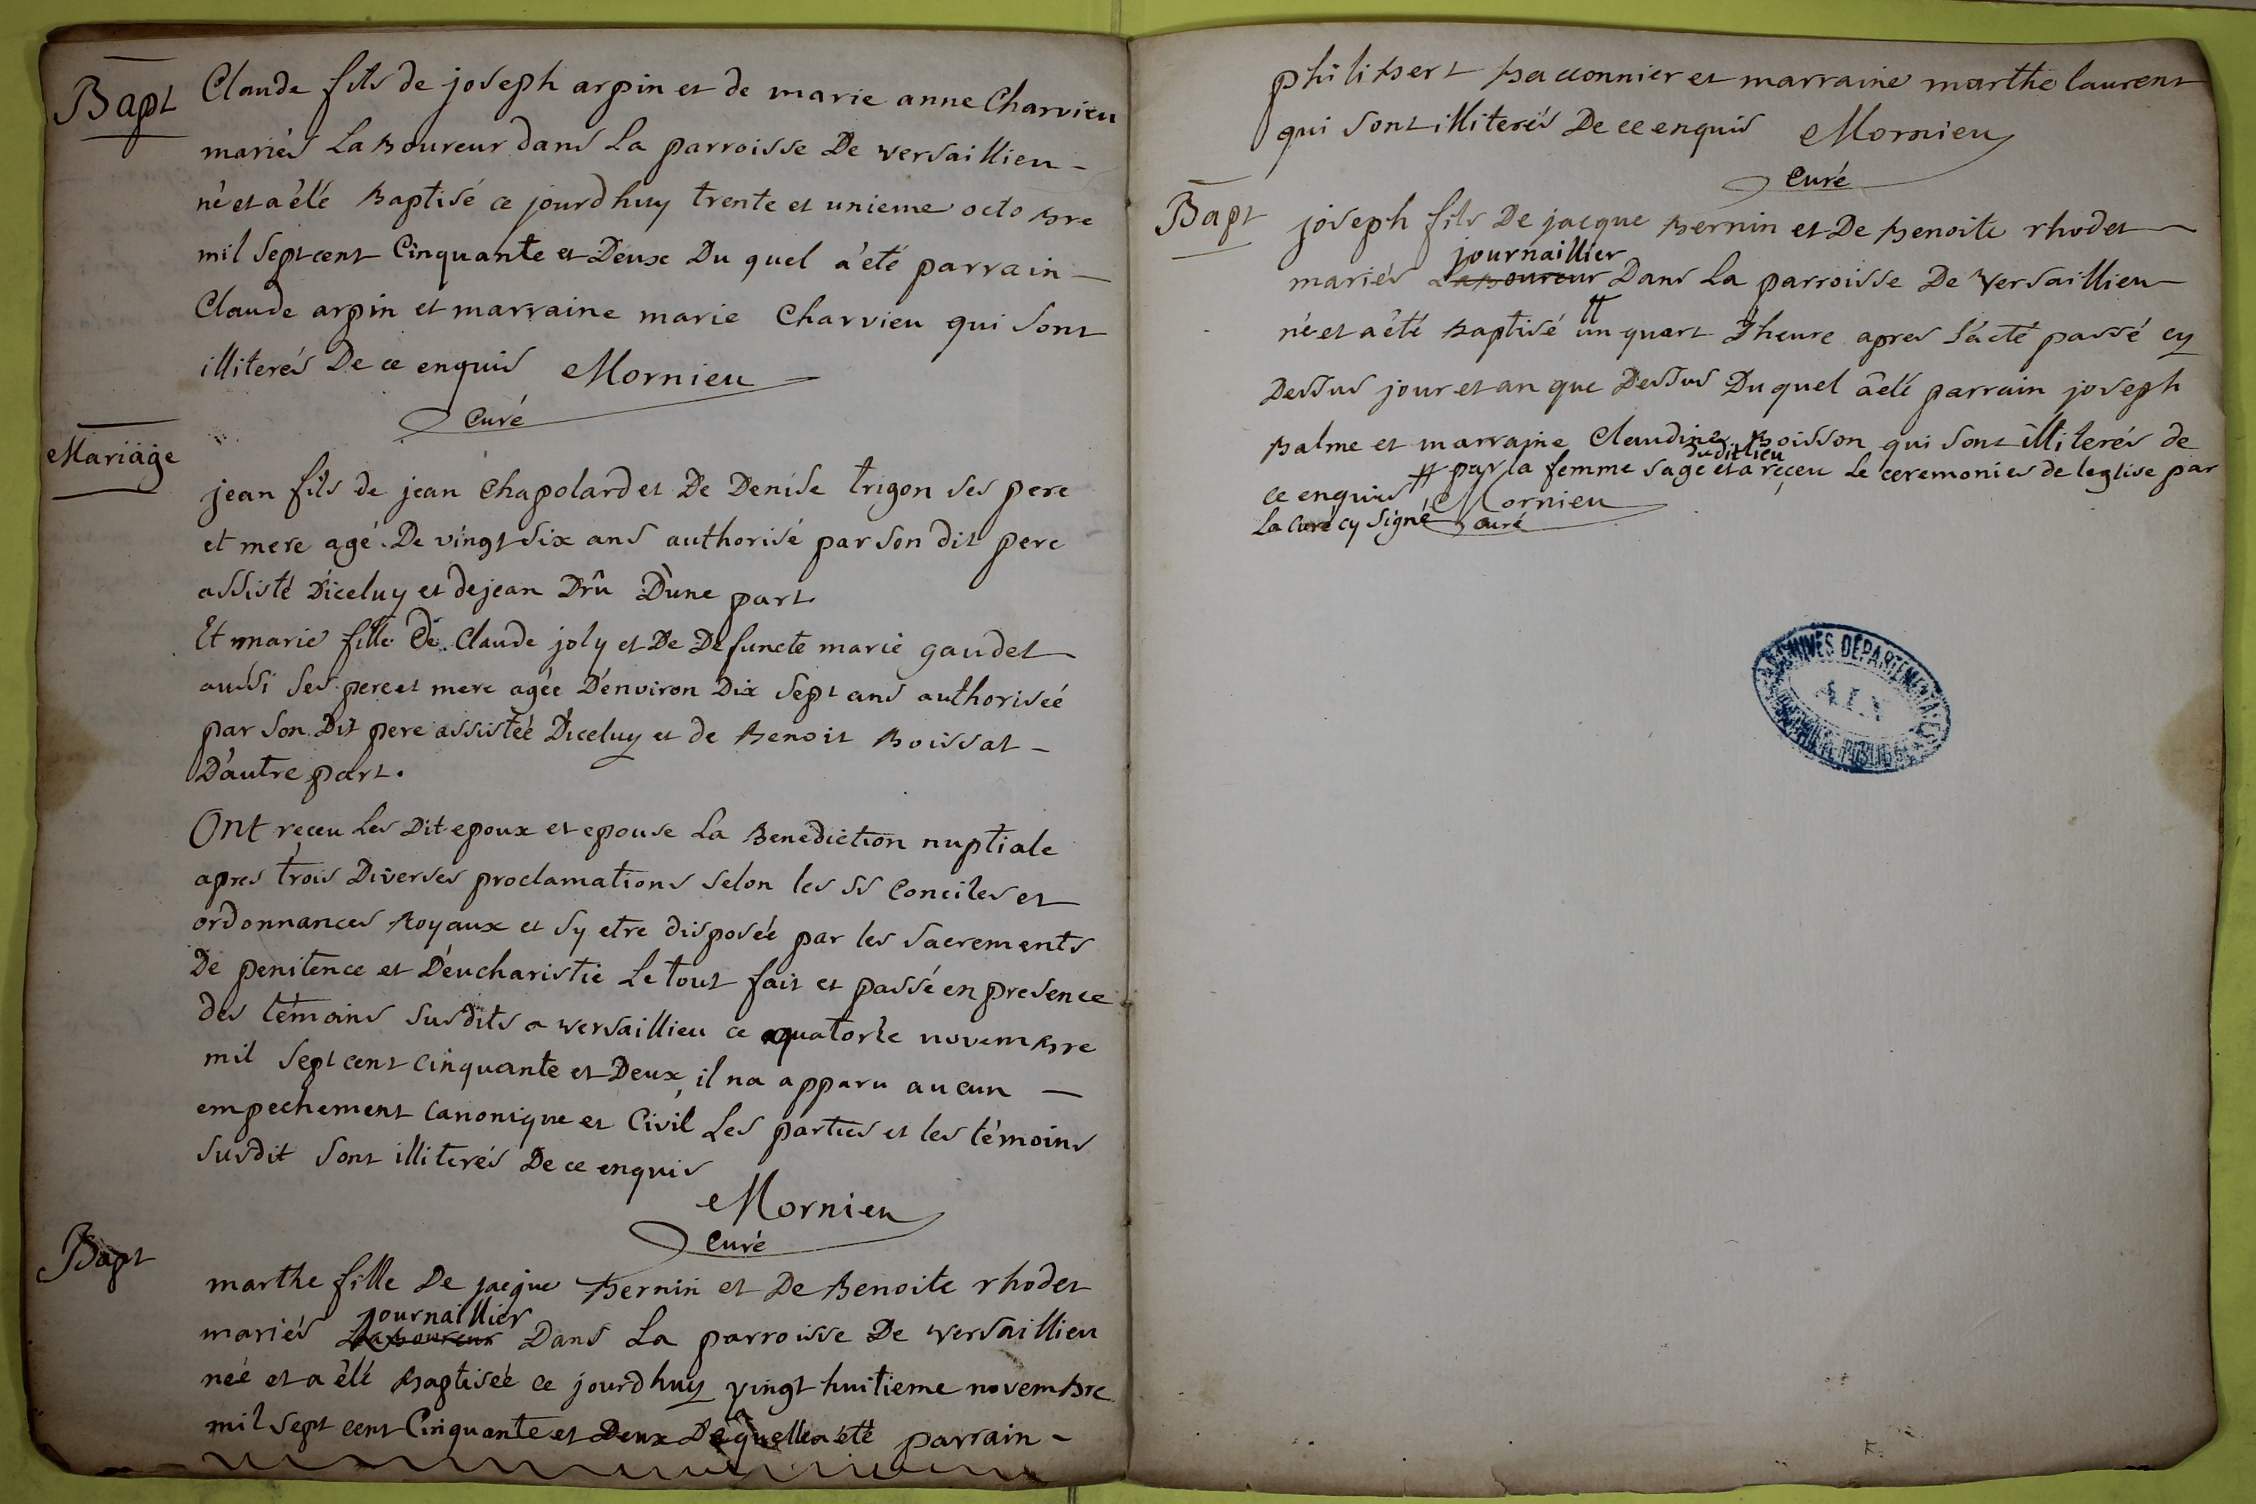 Bapt
Claude fils de joseph arpin et de marie anne Charvieu
mariés Laboureur dans La parroisse De versaillieu -
né et a été Baptisé ce jourdhuy trente et unieme octobre
mil Sept cent Cinquante et Deux Du quel a été parrain -
Claude arpin et marraine marie Charvieu qui sont
illiterés De ce enquis Mornieu
Curé
Mariage
jean fils de jean Chapolard et De Denise trigon ses pere
et mere agé De vingt six ans authorisé par son dit pere
assisté D'iceluy et de jean Drû D'une part.
Et marie fille De Claude joly et De Defuncte marie gaudet
aussi ses pere et mere agée D'environ Dix sept ans authoriseé
par son Dit pere assisteé D'iceluy et de Benoit Boissat -
D'autre part.
Ont receu Les Dit epoux et epouse La Benediction nuptiale
apres trois Diverses proclamations selon les SS Conciles et
ordonnances Royaux et sy etre disposée par les sacrements
De penitence et D'eucharistie Le tout fait et passé en presence
des témoins susdits a versaillieu ce quatorze novembre
mil Sept cent cinquante et Deux, il na apparu aucun -
empechement Canonique et Civil Les parties et les témoins
susdit sont illiterés De ce enquis
Mornieu
Curé
Bapt
marthe fille De jacque Bernin et De Benoite rhodet
journaillier
mariés Laboureur Dans La parroisse De versaillieu
neé et a été Baptiseé ce jourdhuy vingt huitieme novembre
mil Sept cent Cinquante et Deux De quelle a été parrain -
philibert Bacconnier et marraine marthe laurent
qui sont illiterés De ce enquis Mornieu
Curé
Bapt
joseph fils De jacque Bernin et De Benoite rhodet
journaillier
mariés Laboureur Dans La parroisse De versaillieu
né et a été Baptisé # un quart d'heure apres l'acte passé cy
Dessus jour et an que Dessus Du quel a été parrain joseph
Balme et marraine Claudine Boisson qui sont illiterés de
du dit lieu
ce enquis # par la femme sage et a receu Le ceremonies de leglise par
Mornieu
La Curé cy signé curé
ARCHIVES DEPARTEMENTALES
AIN